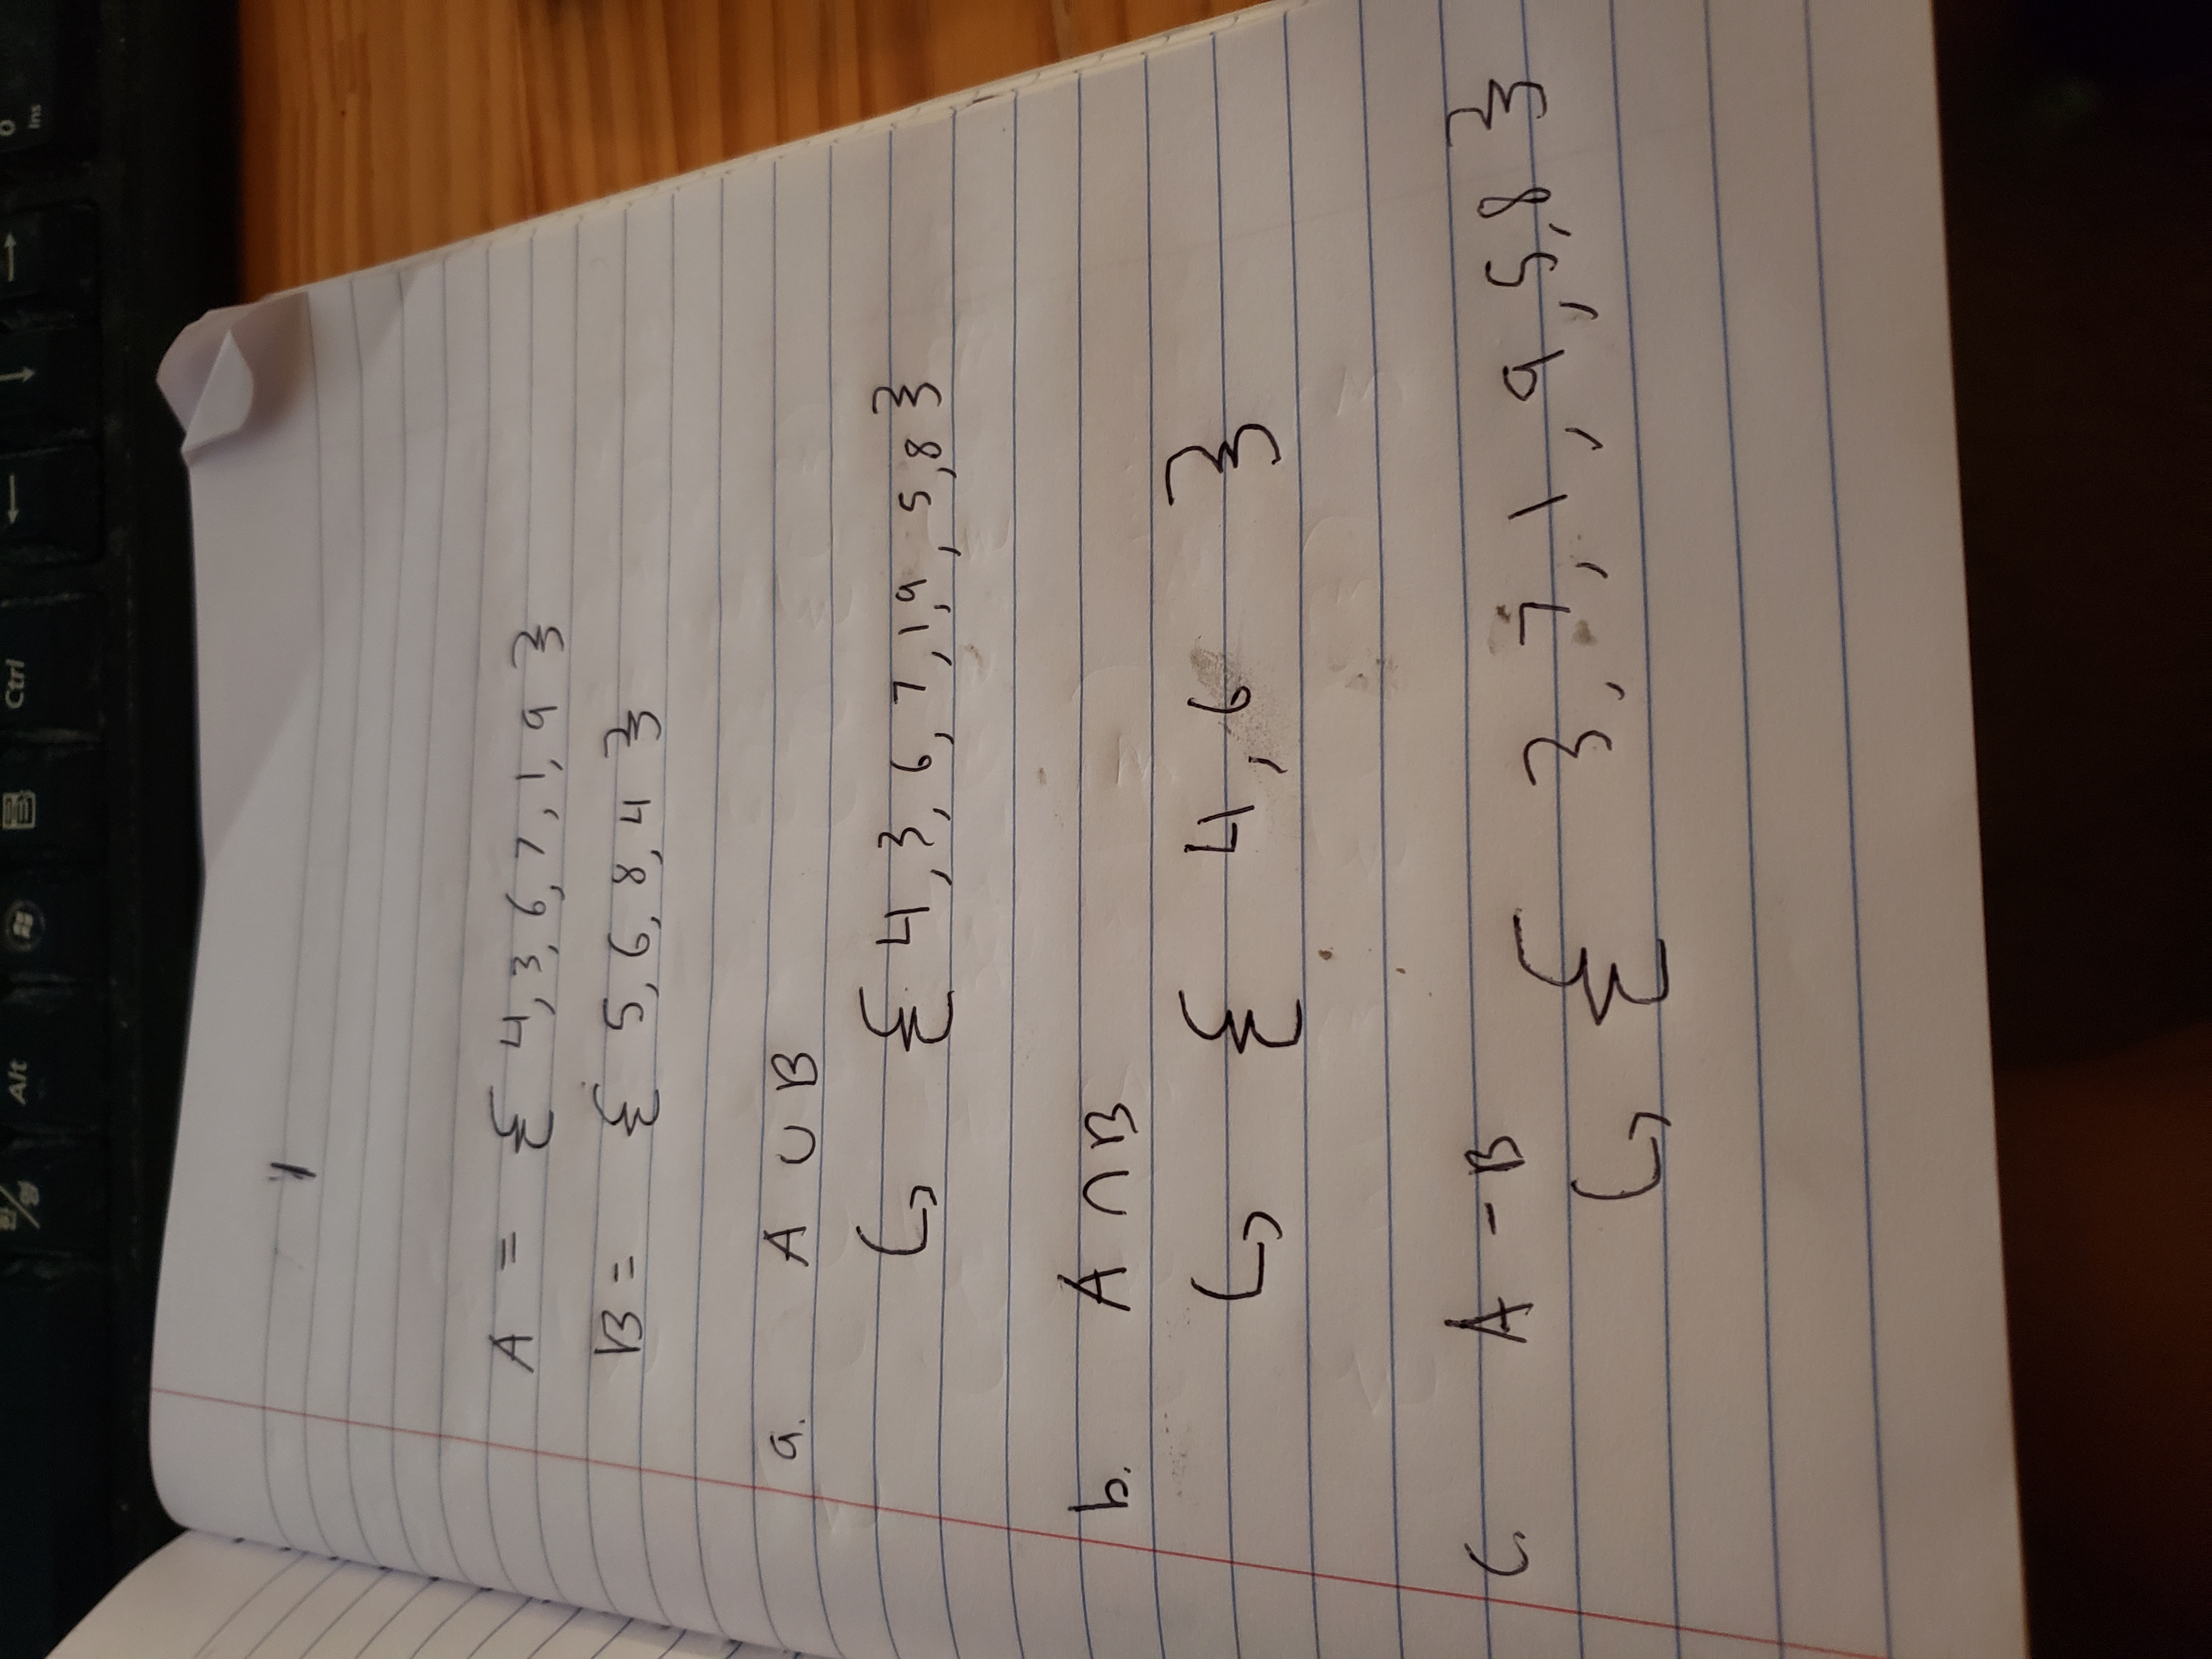 한/영 Alt Ctrl ← ↓ → 0 Ins
A = { 4, 3, 6, 7, 1, 9 }
B = { 5, 6, 8, 4 }
a. A ∪ B
↪ { 4, 3, 6, 7, 1, 9, 5, 8 }
b. A ∩ B
↪ { 4, 6 }
c. A - B
↪ { 3, 7, 1, 9, 5, 8 }